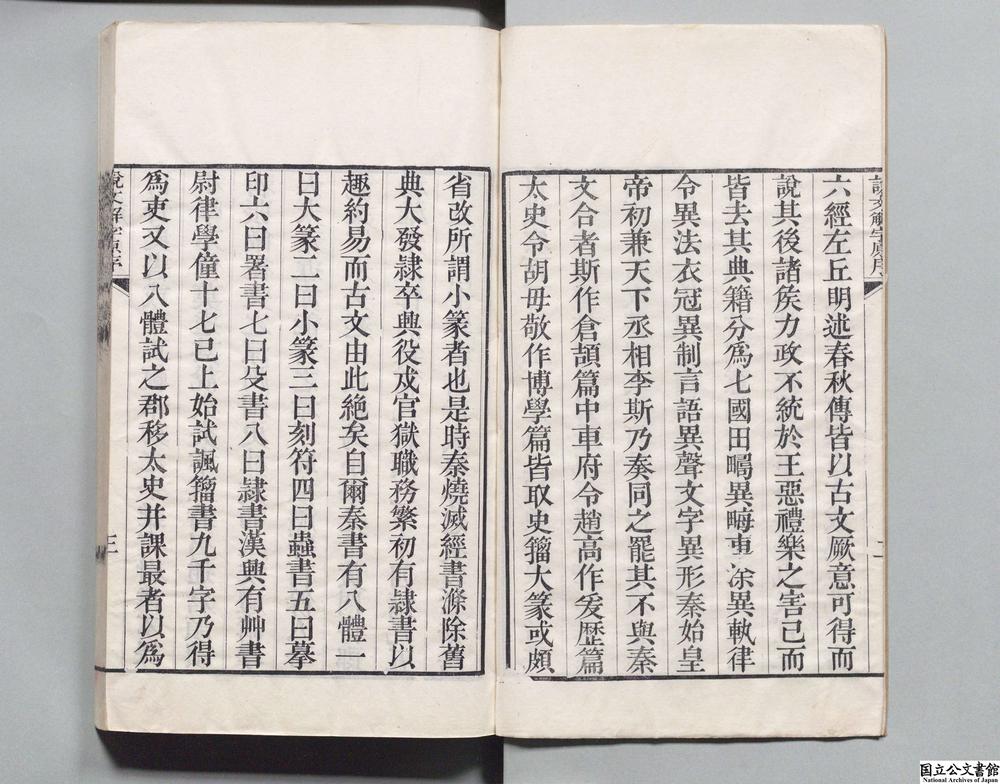 說文解字原序
二
六經左丘明述春秋傳皆以古文厥意可得而
說其後諸矦力政不統於王惡禮樂之害己而
皆去其典籍分爲七國田疇異畮車涂異軌律
令異法衣冠異制言語異聲文字異形秦始皇
帝初兼天下丞相李斯乃奏同之罷其不與秦
文合者斯作倉頡篇中車府令趙高作爰歴篇
太史令胡毋敬作博學篇皆取史籀大篆或頗
省改所謂小篆者也是時秦燒滅經書滌除舊
典大發隷卒興役戍官獄職務繁初有隷書以
趣約易而古文由此絕矣自爾秦書有八體一
曰大篆二曰小篆三曰刻符四曰蟲書五曰摹
印六曰署書七曰殳書八曰隷書漢興有艸書
尉律學僮十七已上始試諷籀書九千字乃得
爲吏又以八體試之郡移太史并課最者以爲
說文解字原序
三
国立公文書館
National Archives of Japan